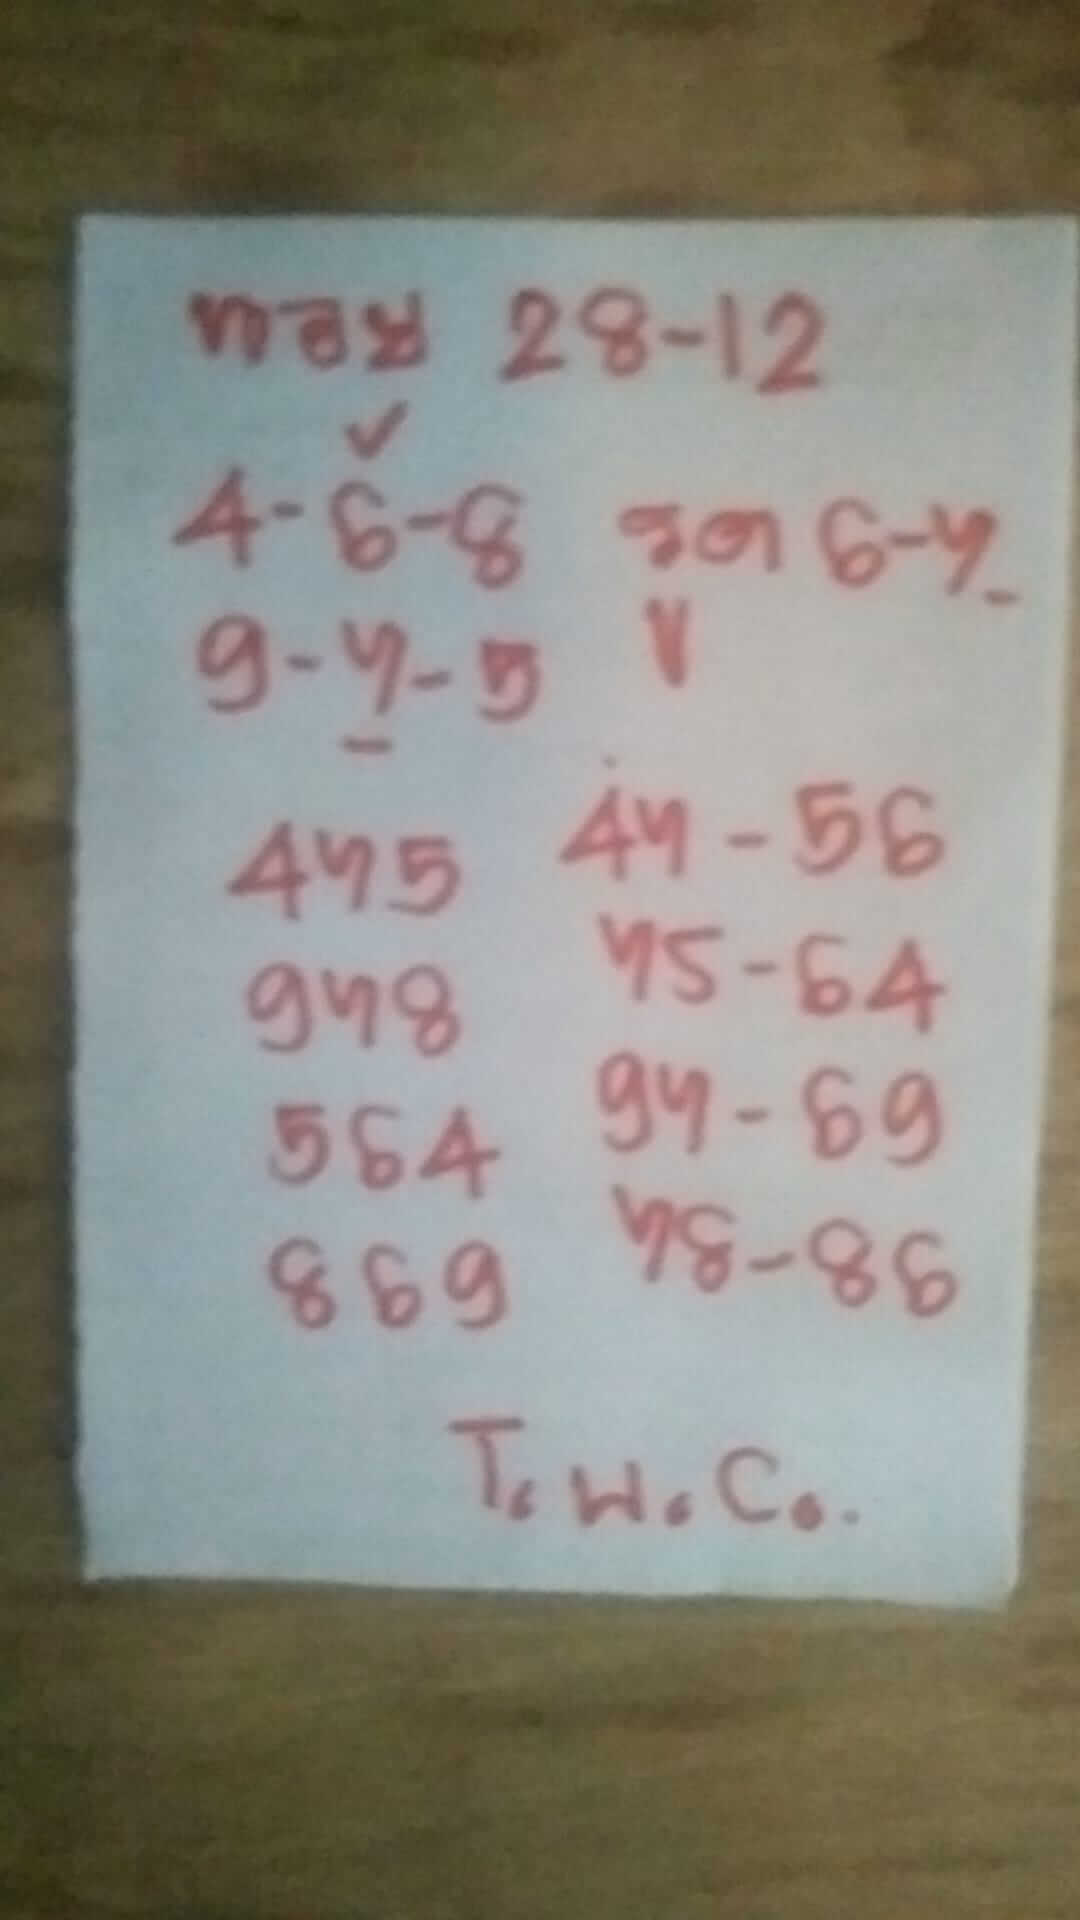 28-12
✓
4-6-8 รูด 6-7
9-7-5
475 47-56
978 75-64
564 97-69
869 78-86
T.W.C.